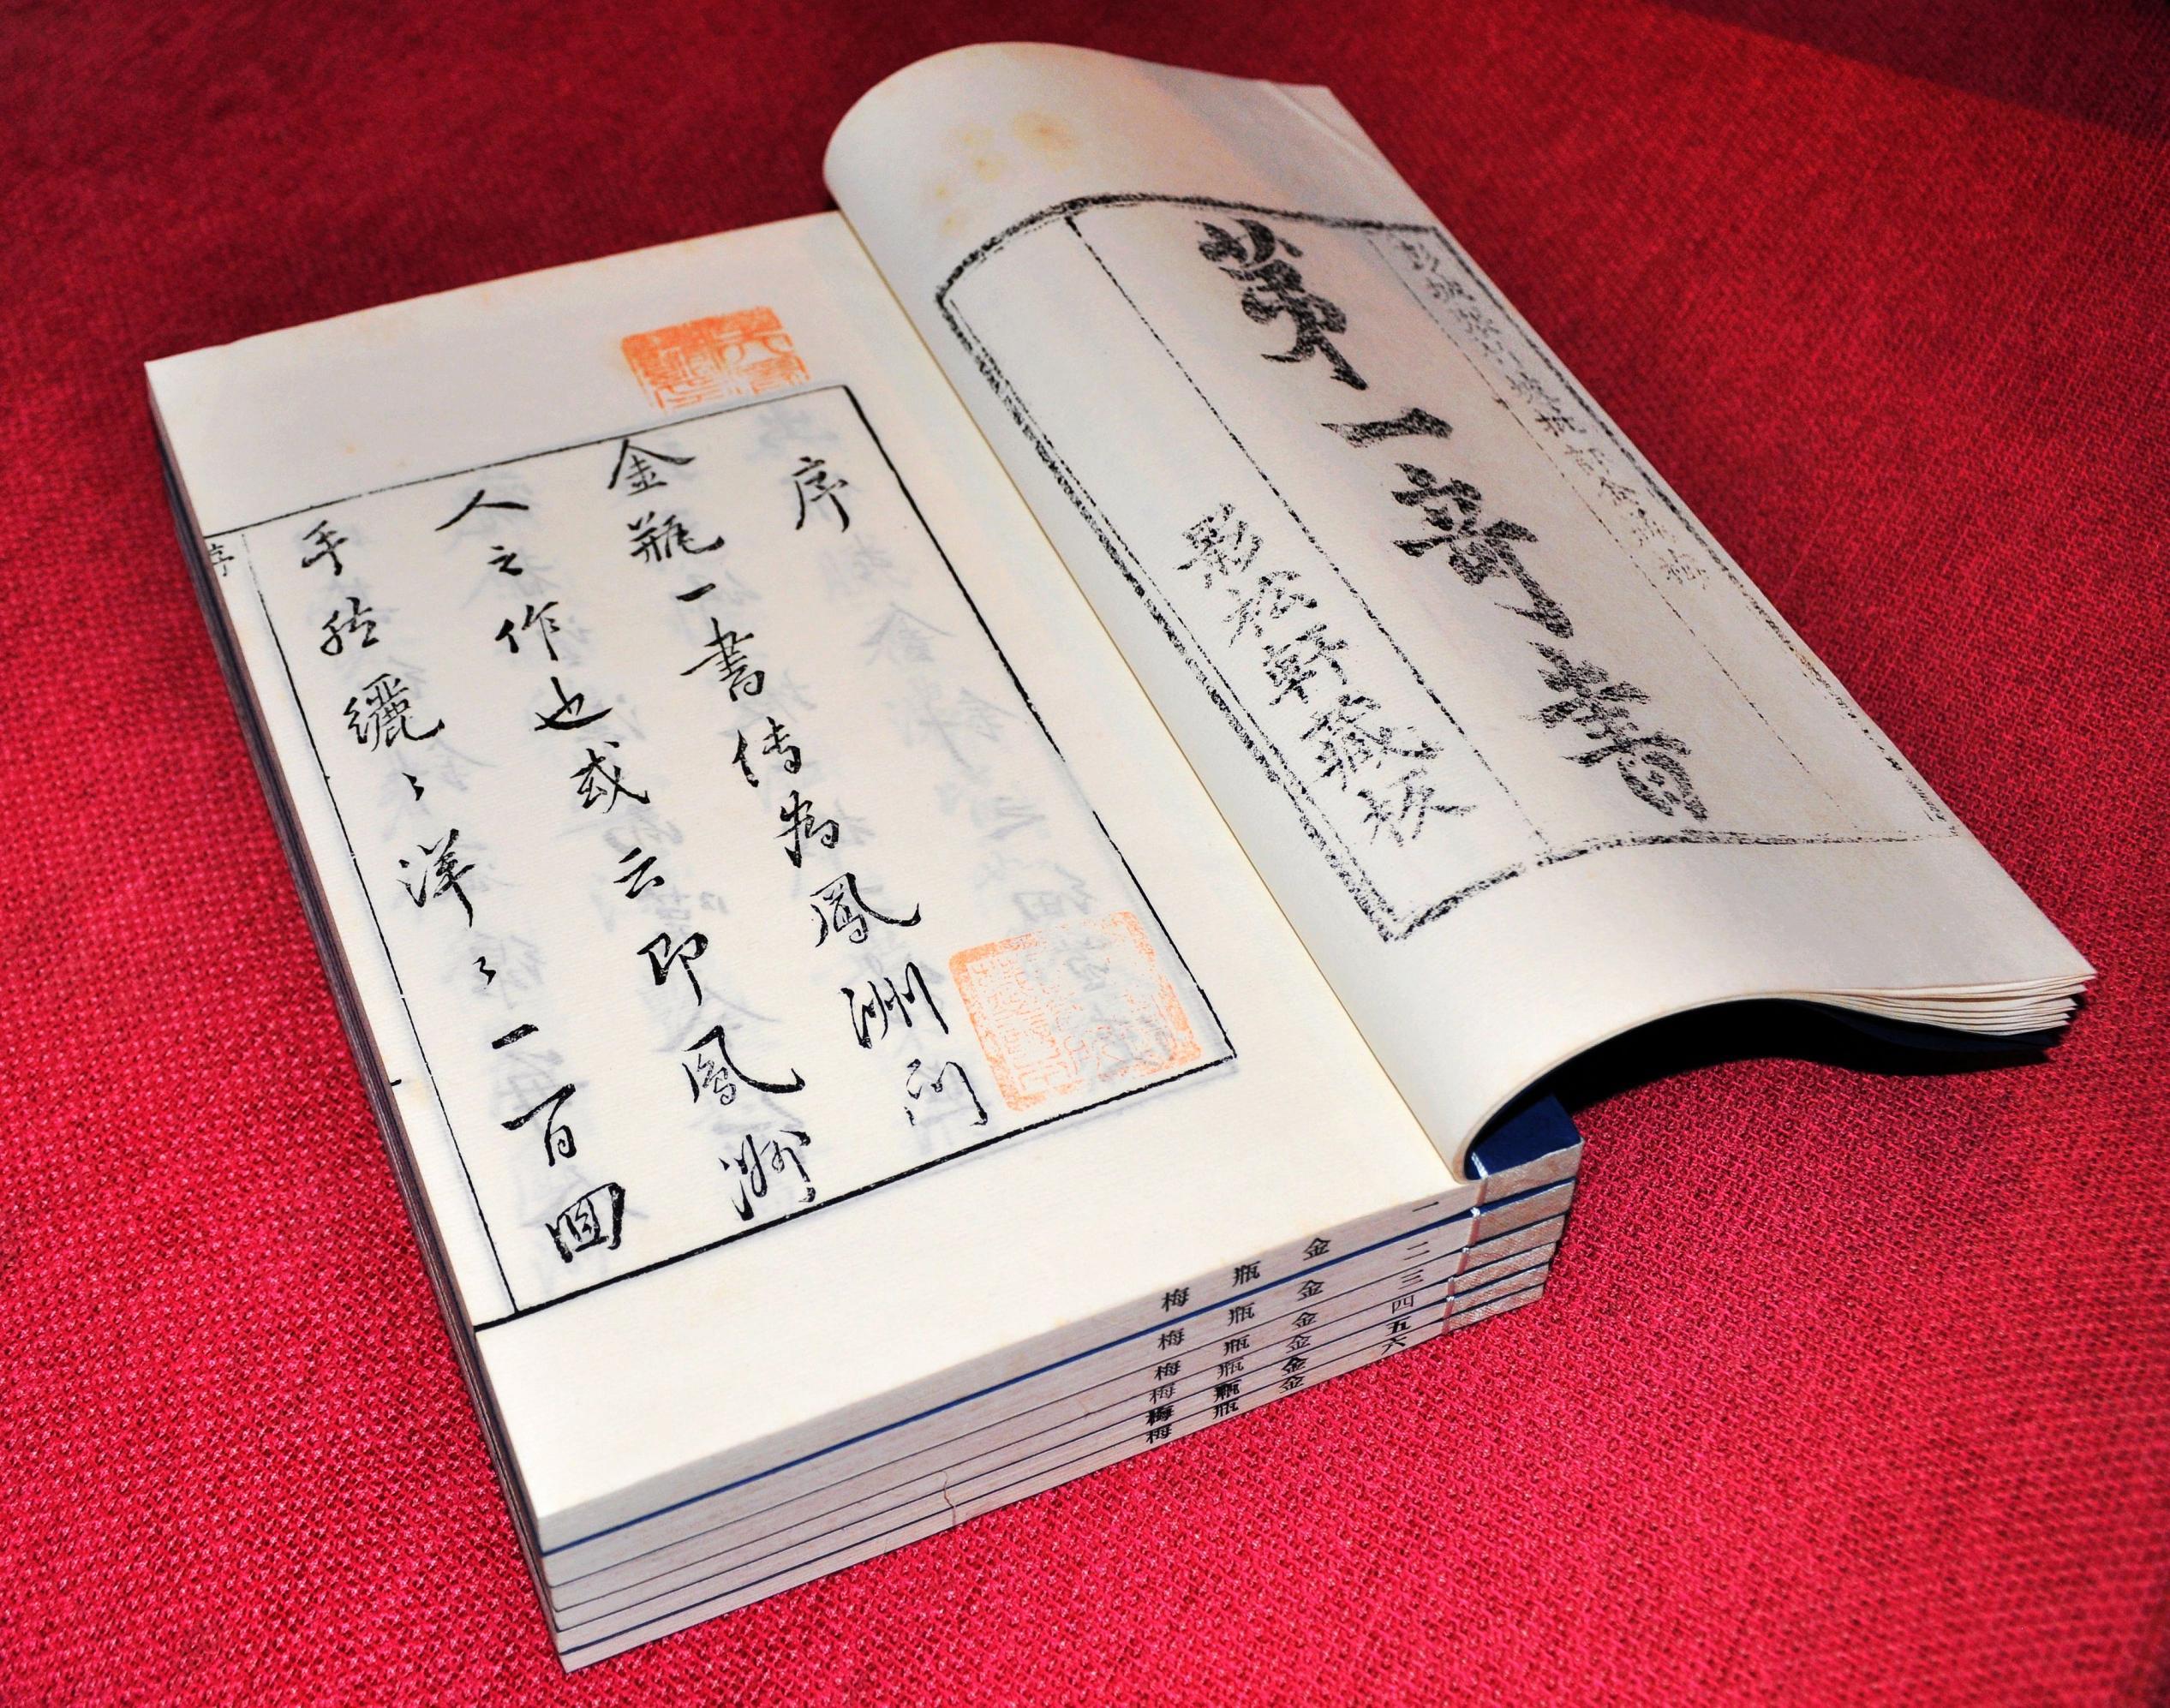 第一奇書
影松軒藏板
序
金瓶一書傳為鳳洲門
人之作也或云即鳳洲
手然纚〻洋〻一百回
序
一
金瓶梅
二
金瓶梅
三
金瓶梅
四
金瓶梅
五
金瓶梅
六
金瓶梅